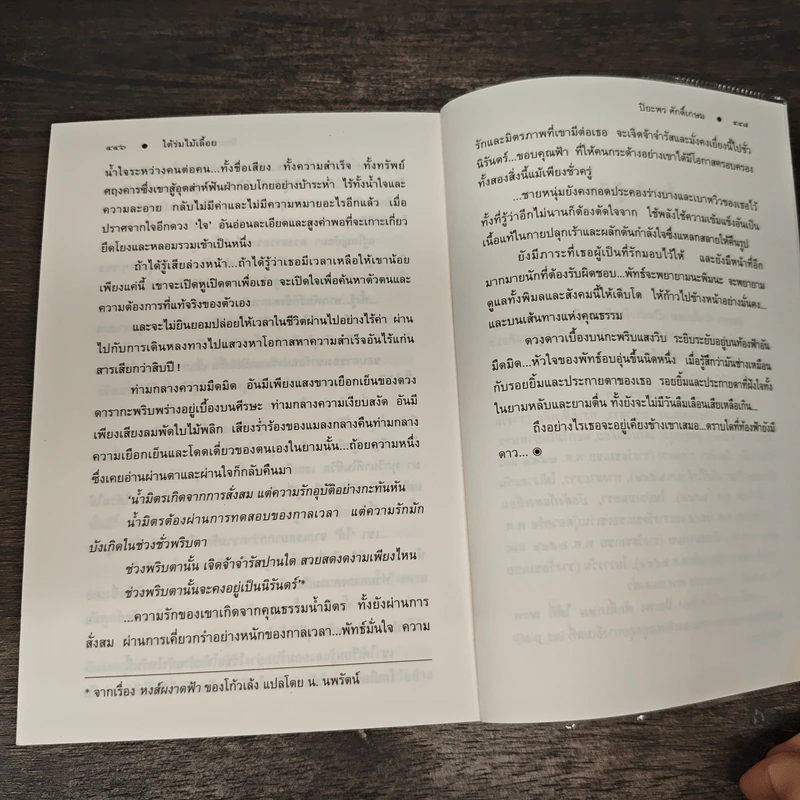 ๔๔๖ ● ใต้ร่มไม้เลื้อย
น้ำใจระหว่างคนต่อคน...ทั้งชื่อเสียง ทั้งความสำเร็จ ทั้งทรัพย์
ศฤงคารซึ่งเขาสู้อุตส่าห์ฟันฝ่ากอบโกยอย่างบ้าระห่ำ ไร้ทั้งน้ำใจและ
ความละอาย กลับไม่มีค่าและไม่มีความหมายอะไรอีกแล้ว เมื่อ
ปราศจากใจอีกดวง ‘ใจ’ อันอ่อนละเอียดและสูงค่าพอที่จะเกาะเกี่ยว
ยึดโยงและหลอมรวมเข้าเป็นหนึ่ง
ถ้าได้รู้เสียล่วงหน้า...ถ้าได้รู้ว่าเธอมีเวลาเหลือให้เขาน้อย
เพียงแค่นี้ เขาจะเปิดหูเปิดตาเพื่อเธอ จะเปิดใจเพื่อค้นหาตัวตนและ
ความต้องการที่แท้จริงของตัวเอง
และจะไม่ยินยอมปล่อยให้เวลาในชีวิตผ่านไปอย่างไร้ค่า ผ่าน
ไปกับการเดินหลงทางไปแสวงหาโอกาสหาความสำเร็จอันไร้แก่น
สารเสียกว่าสิบปี !
ท่ามกลางความมืดมิด อันมีเพียงแสงขาวเยือกเย็นของดวง
ดารากะพริบพร่างอยู่เบื้องบนศีรษะ ท่ามกลางความเงียบสงัด อันมี
เพียงเสียงลมพัดใบไม้พลิก เสียงร่ำร้องของแมลงกลางคืนท่ามกลาง
ความเยือกเย็นและโดดเดี่ยวของตนเองในยามนั้น...ถ้อยความหนึ่ง
ซึ่งเคยอ่านผ่านตาและผ่านใจก็กลับคืนมา
‘น้ำมิตรเกิดจากการสั่งสม แต่ความรักอุบัติอย่างกะทันหัน
น้ำมิตรต้องผ่านการทดสอบของกาลเวลา แต่ความรักมัก
บังเกิดในช่วงชั่วพริบตา
ช่วงพริบตานั้น เจิดจ้าจำรัสปานใด สวยสดงดงามเพียงไหน
ช่วงพริบตานั้นจะคงอยู่เป็นนิรันดร์’*
...ความรักของเขาเกิดจากคุณธรรมน้ำมิตร ทั้งยังผ่านการ
สั่งสม ผ่านการเคี่ยวกรำอย่างหนักของกาลเวลา...พัทธ์มั่นใจ ความ
* จากเรื่อง หงส์ผงาดฟ้า ของโก้วเล้ง แปลโดย น. นพรัตน์
ปิยะพร ศักดิ์เกษม ●
รักและมิตรภาพที่เขามีต่อเธอ จะเจิดจ้าจำรัสและมั่งคงเยี่ยงนี้ไปชั่ว
นิรันดร์...ขอบคุณฟ้า ที่ให้คนกระด้างอย่างเขาได้มีโอกาสครอบครอง
ทั้งสองสิ่งนี้แม้เพียงชั่วครู่
...ชายหนุ่มยังคงกอดประคองร่างบางและเบาหวิวของเธอไว้
ทั้งที่รู้ว่าอีกไม่นานก็ต้องตัดใจจาก ใช้พลังใช้ความเข้มแข็งอันเป็น
เนื้อแท้ในกายปลุกเร้าและผลักดันกำลังใจซึ่งแหลกสลายให้คืนรูป
ยังมีภาระที่เธอผู้เป็นที่รักมอบไว้ให้ และยังมีหน้าที่อีก
มากมายนักที่ต้องรับผิดชอบ...พัทธ์จะพยายามนะพิมนะ จะพยายาม
ดูแลทั้งพิมลและสังคมนี้ให้เติบโต ให้ก้าวไปข้างหน้าอย่างมั่นคง...
และบนเส้นทางแห่งคุณธรรม
ดวงดาวเบื้องบนกะพริบแสงวิบ ระยิบระยับอยู่บนท้องฟ้าอัน
มืดมิด...หัวใจของพัทธ์อบอุ่นขึ้นนิดหนึ่ง เมื่อรู้สึกว่ามันช่างเหมือน
กับรอยยิ้มและประกายตาของเธอ รอยยิ้มและประกายตาที่ฝังใจทั้ง
ในยามหลับและยามตื่น ทั้งยังจะไม่มีวันลืมเลือนเสียเหลือเกิน...
ถึงอย่างไรเธอจะอยู่เคียงข้างเขาเสมอ...ตราบใดที่ท้องฟ้ายังมี
ดาว... ◉